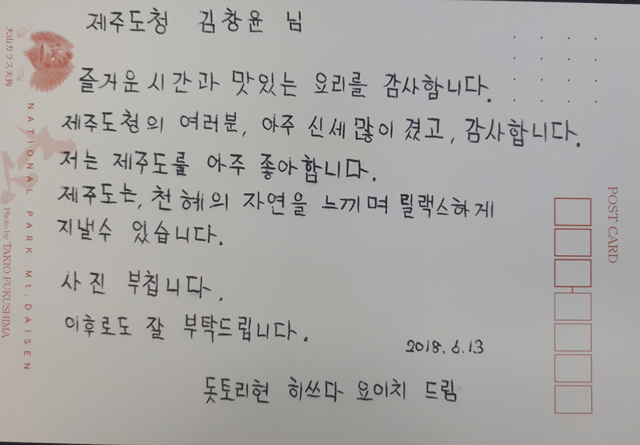 제주도청 김창윤 님
즐거운 시간과 맛있는 요리를 감사합니다.
제주도청의 여러분, 아주 신세 많이 졌고, 감사합니다.
저는 제주도를 아주 좋아합니다.
제주도는, 천혜의 자연을 느끼며 릴랙스하게
지낼수 있습니다.
사진 부칩니다.
이후로도 잘 부탁드립니다.
2018.6.13
돗토리현 히쓰다 요이치 드림
大山カラス天狗
NATIONAL PARK Mt. DAISEN
Photo by: TAKIO FUKUSHIMA
POST CARD